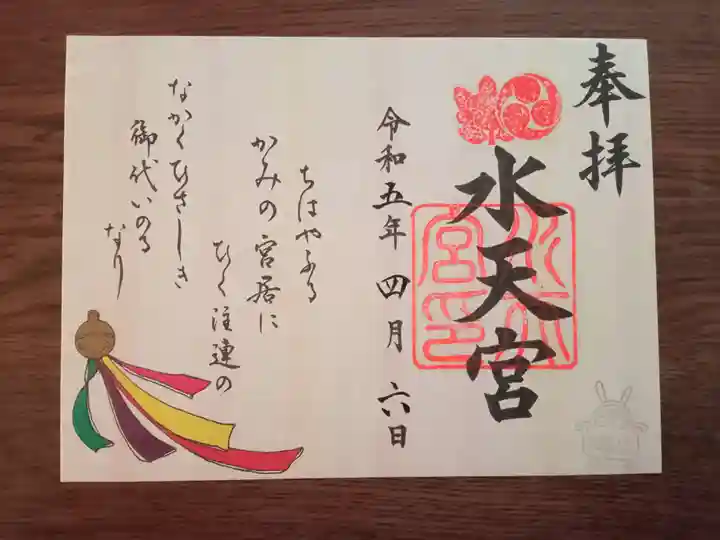 奉拝
水天宮
水天宮印
令和五年 四月 六日
ちはやふる
かみの宮居に
ひく注連の
なかくひさしき
御代いのる
なり